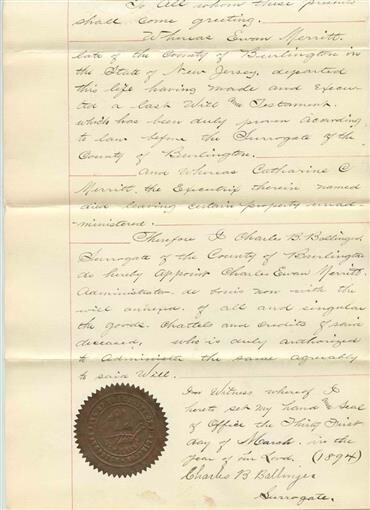 To All whom these presents
shall Come greeting.
Whereas Evan Merritt.
late of the County of Burlington in
the State of New Jersey, departed
this life having made and Execu-
ted a last Will and Testament.
which has been duly proven according
to law before the Surrogate of the
County of Burlington.
And Whereas Catharine C
Merritt, the Executrix therein named
died leaving certain property unad-
ministered.
Therefore I Charles B. Ballinger,
Surrogate of the County of Burlington
do hereby Appoint Charles Evan Merritt.
Administrator de bonis non with the
will annexed. of all and singular
the goods. Chattels and credits of said
deceased, who is duly authorized
to Administer the same agreeably
to said Will.
In Witness whereof I
hereto set my hand and Seal
of Office the Thirty First
day of March. in the
year of our Lord. (1894)
Charles B Ballinger
Surrogate.